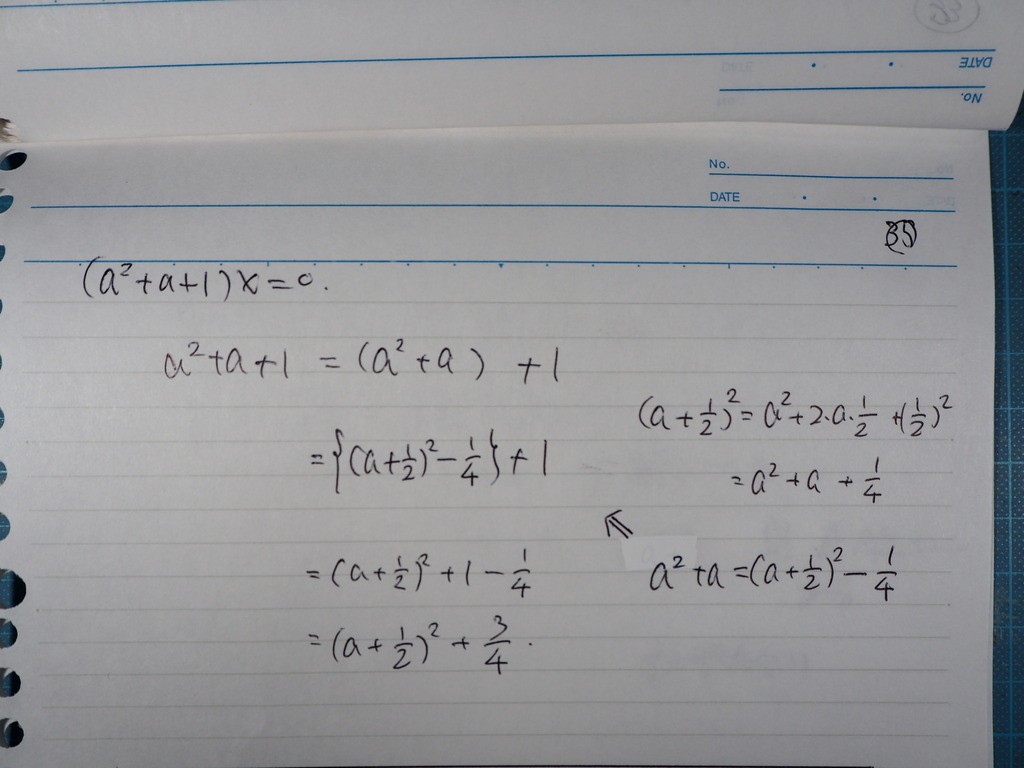 DATE
No.
No.
DATE
(a²+a+1)x=0.
a²+a+1 = (a²+a) +1
={(a+1/2)²-1/4}+1
=(a+1/2)²+1-1/4
=(a+1/2)²+3/4.
(a+1/2)²=a²+2·a·1/2+(1/2)²
=a²+a+1/4
⇖
a²+a=(a+1/2)²-1/4